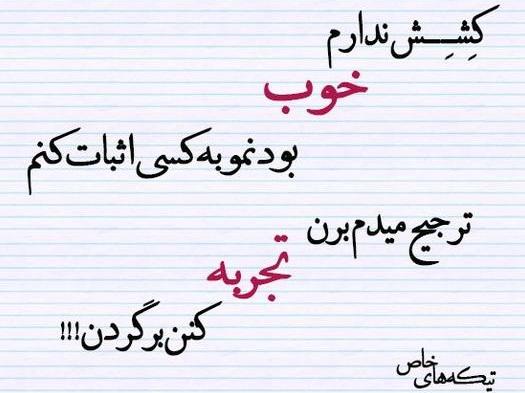 کِشِـــش ندارم
خوب
بودنمو به کسی اثبات کنم
ترجیح میدم برن
تجربه
کنن برگردن!!!
تیکه‌های خاص